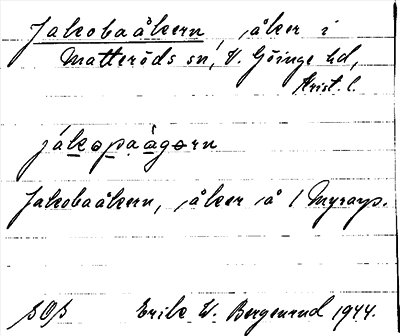 Jakobaåkern, åker i
Matteröds sn, V. Göinge hd,
Krist. l.
jákopaàgorn
Jakobaåkern, åker å 1 Myrarp.
SOS Erik W. Bergenrud 1944.